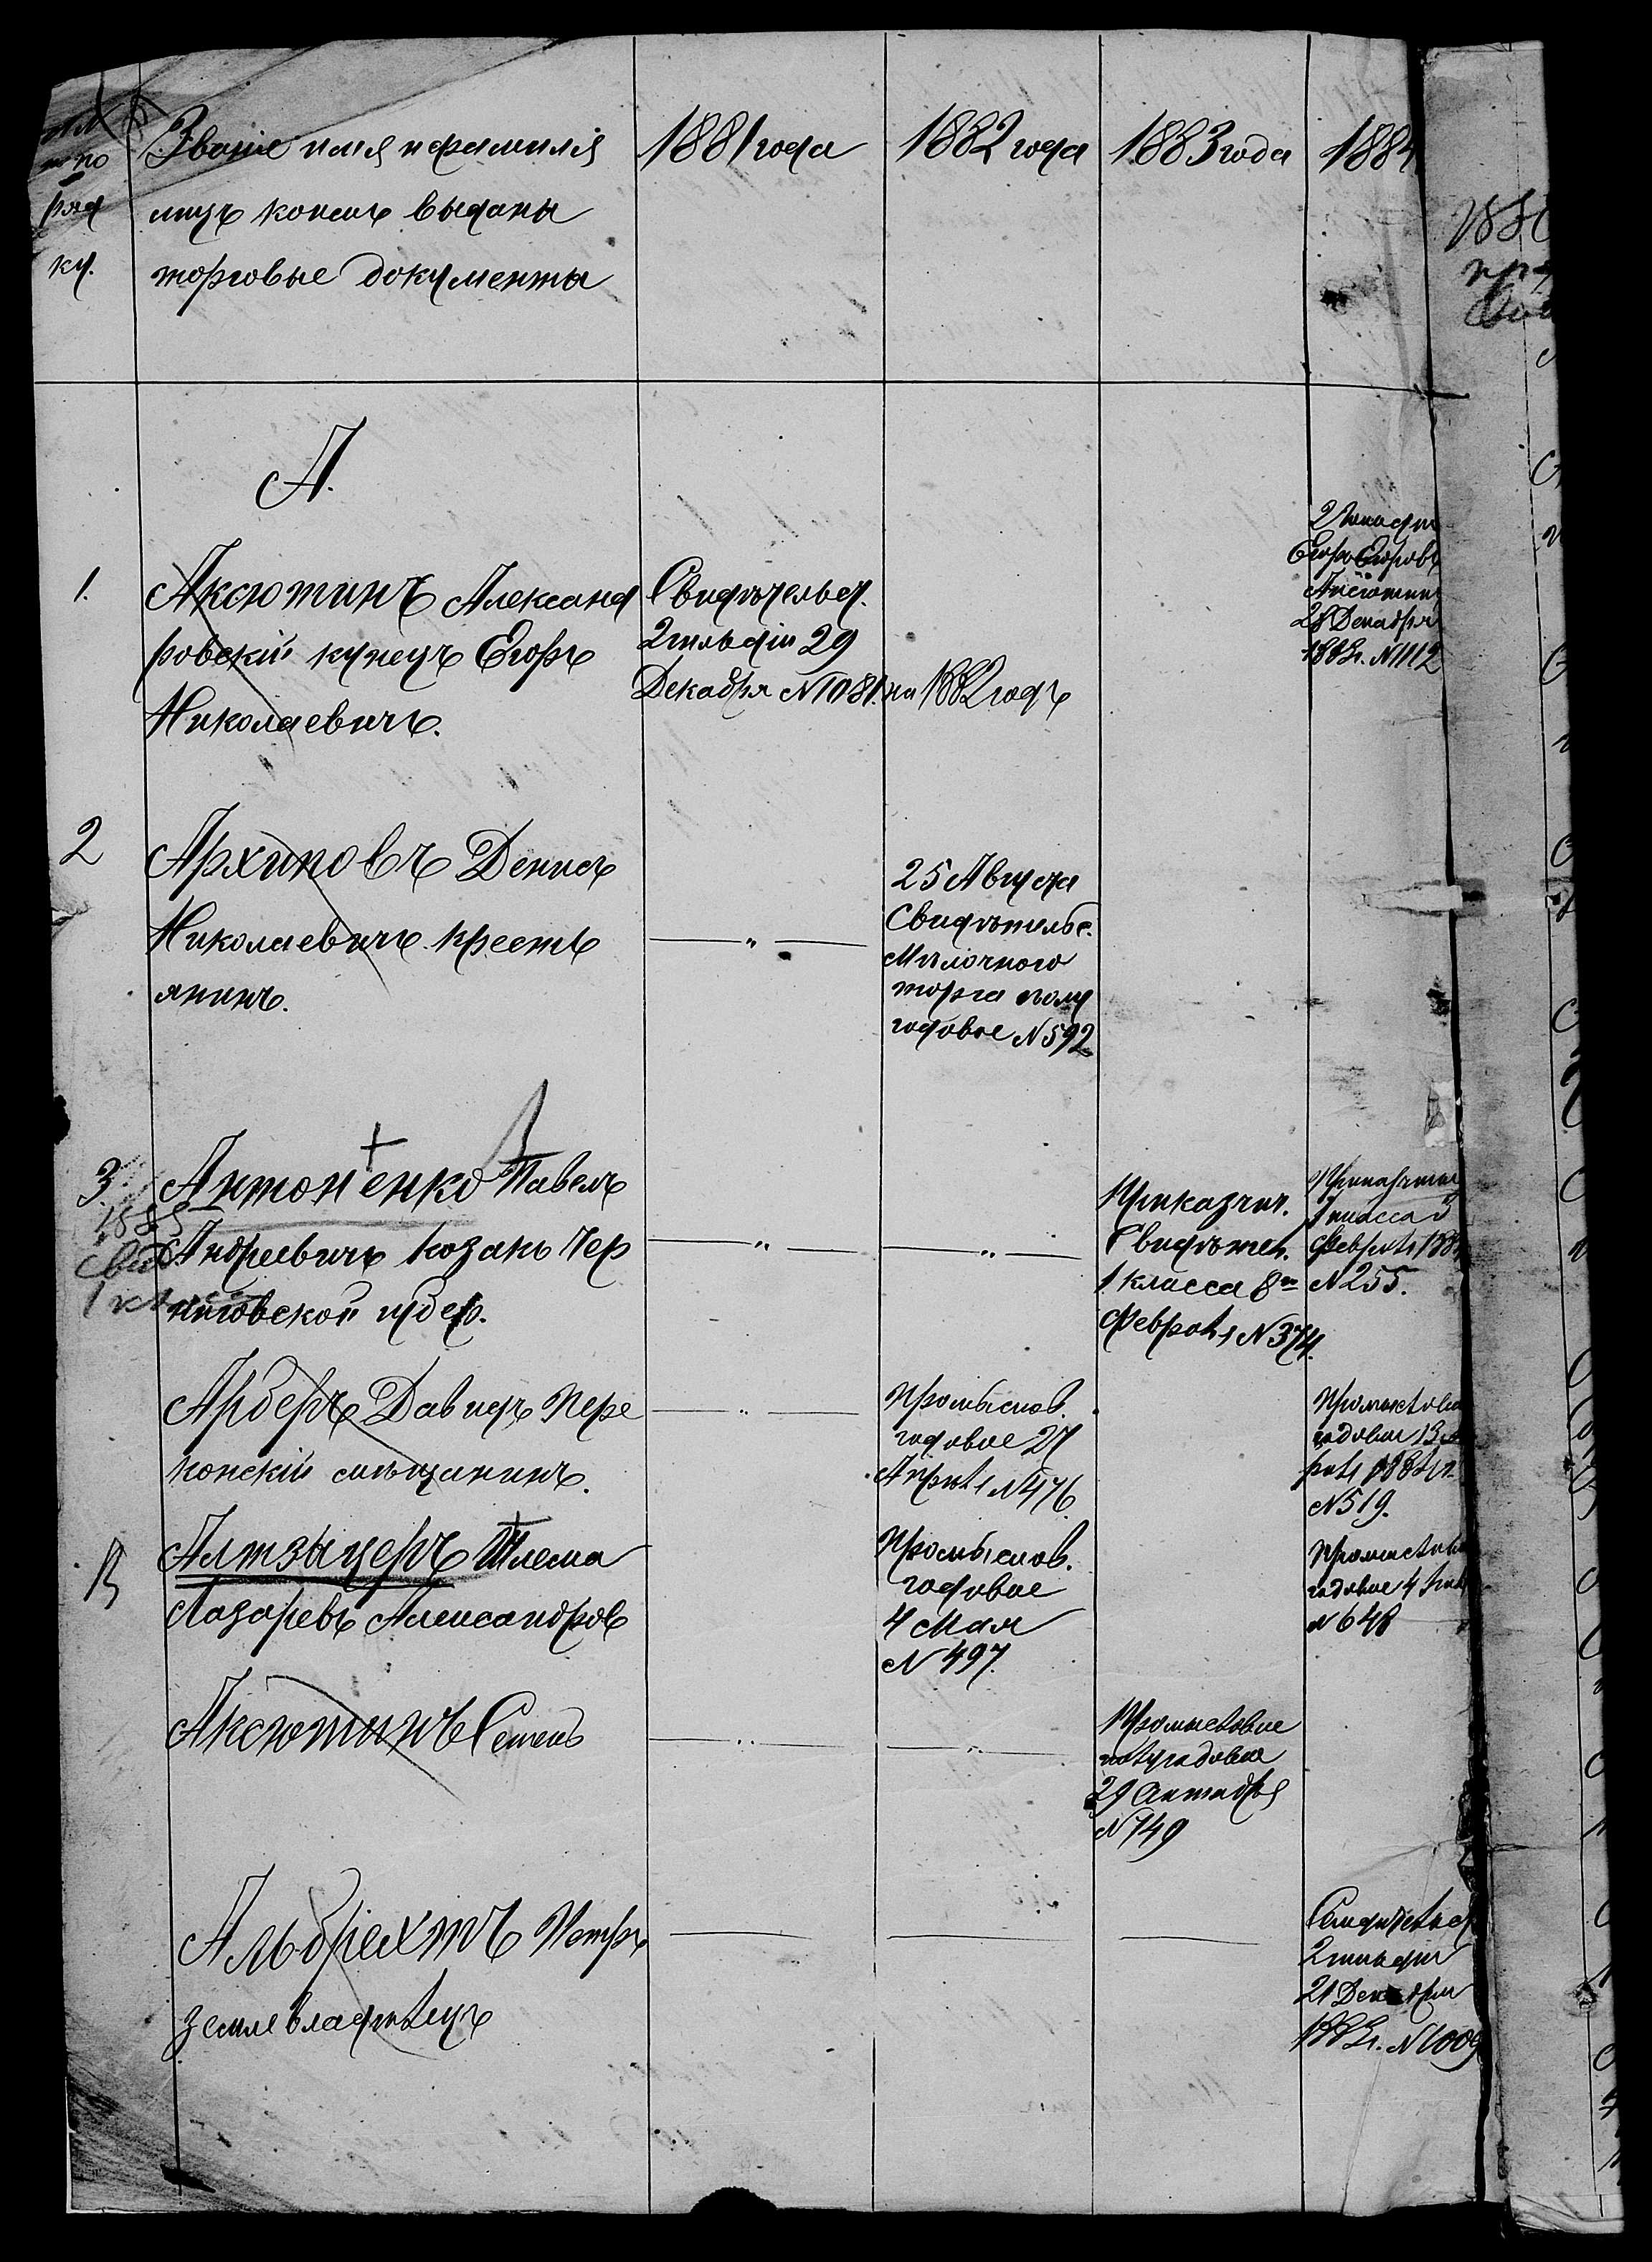 по
ряд
ку.
Званіе имя и фамилія
лицъ коимъ выданы
торговые документы
1881 года
1882 года
1883 года
1884
А.
1.
Аксютинъ Александ
ровскій купецъ Егоръ
Николаевичъ.
Свидѣтельст.
2 гильдіи 29
Декабря N1081. на 1882 годъ
2 гильдіи
Егоръ Егоровъ
Аксютинъ
28 Декабря
1883г. N1112
2
Архиповъ Денисъ
Николаевичъ кресть
янинъ.
25 Августа
Свидѣтельс.
Мѣлочного
торга полу
годовое N592
3.
1885
свид.
1 класса
Антоненко Павелъ
Андреевичъ козакъ Чер
ниговской губер.
Приказчич.
Свидѣтел.
1 класса 8го
Февраля N374.
1 класса 5
Февраля 188
N255.
Арберъ Давидъ Пере
копскій мѣщанинъ.
Промыслов.
годовое 27
Апрѣля N476
Промыслово
годовое 13 ап
рѣля 1884 г.
N519.
Алтзыцеръ Шлема
Лазаревъ Александров
Промыслов.
годовое
4 Мая
N 497.
Промыслово
годовое 4
N 648
Аксютинъ Семенъ
Промысловое
полугодовое
29 Октября
N749
Альбрехтъ Петръ
землевладѣлецъ
Свидѣтельст
2 гильдіи
21 Декабря
1883г. N1009